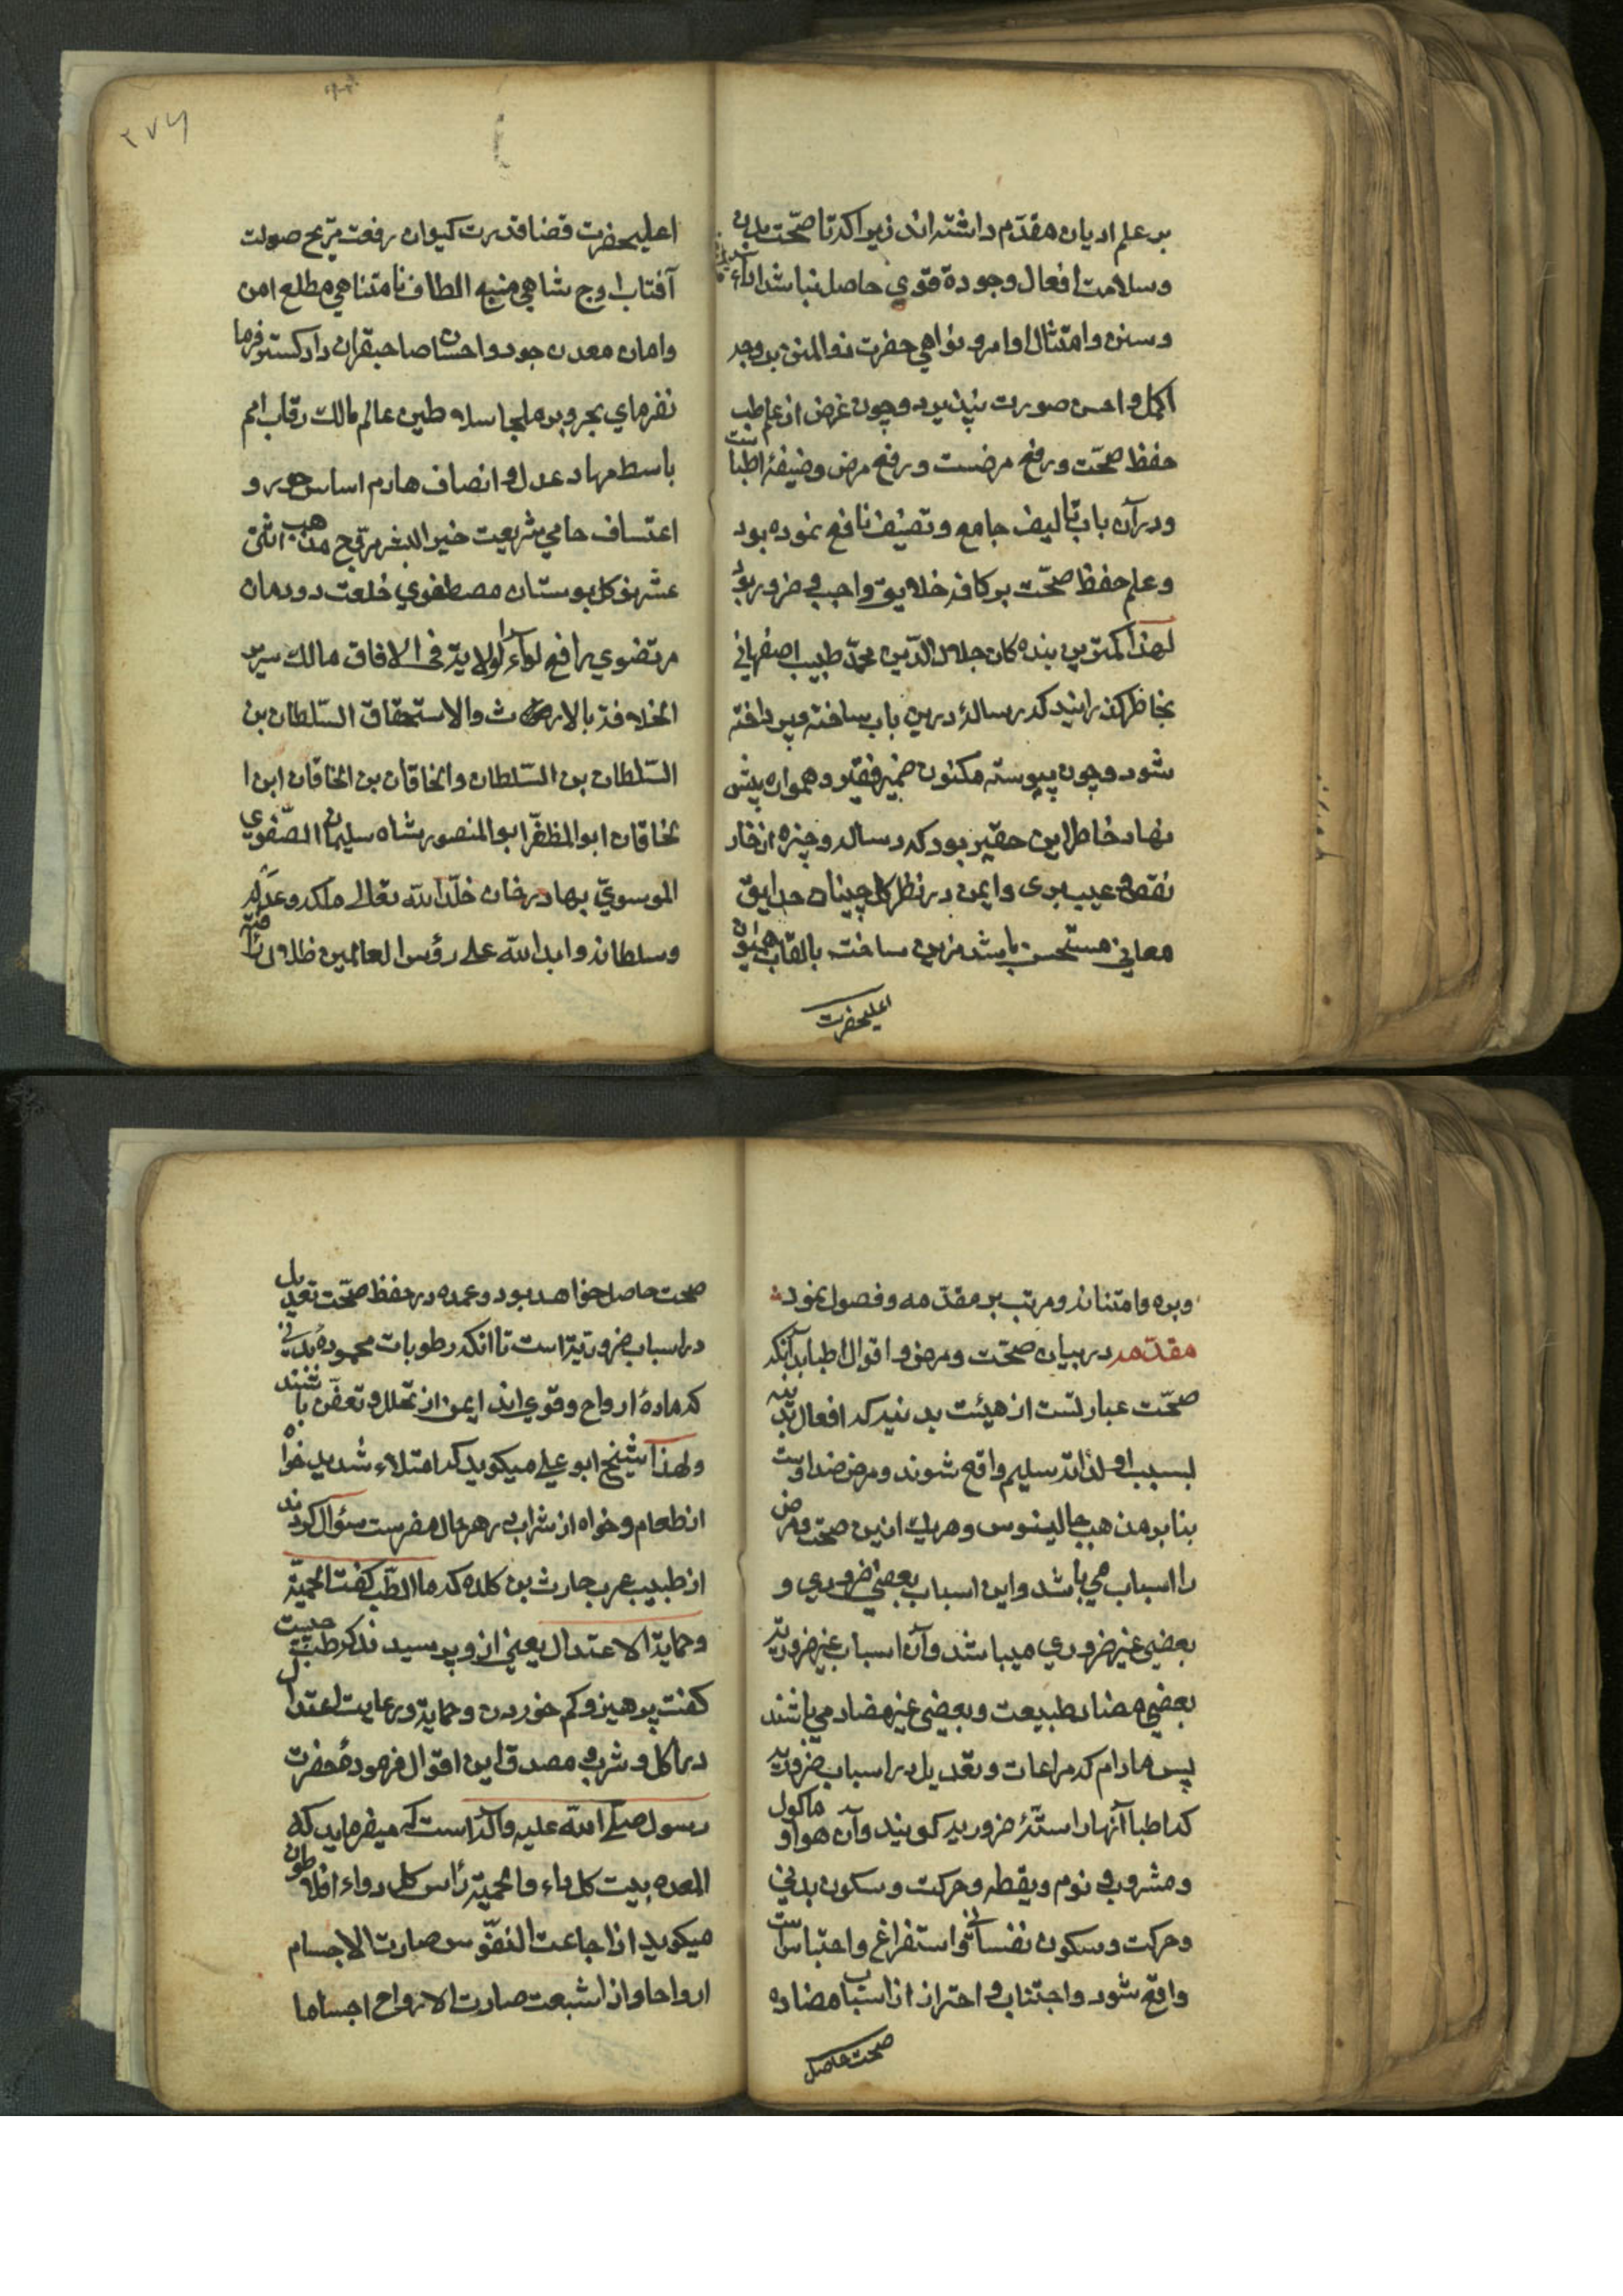 بر علم ادیان مقدّم داشته اند زیرا که تا صحّت بدن
وسلامت افعال وجودة قوی حاصل نباشد اداء
وسنن وامتثال اوامر ونواهی حضرت ذوالمنن بر وجه
اکمل واحسن صورت نپذیرد وچون غرض از علم طب
حفظ صحّت ورفع مرضست ورفع مرض وضیفهٔ اطبا ست
ودر آن باب تألیف جامع وتصنیف نافع نموده بود
وعلم حفظ صحّت بر کافه خلایق واجب وضرور بود
لهذا کمترین بنده کان جلال الدّین محمّد طبیب اصفهانی
بخاطر گذرانید که رسالهٔ درین باب ساخته وپرداخته
شود وچون پیوسته مکنون ضمیر فقیر وهمواره پیش
نهاد خاطر این حقیر بود که رساله وجیزه از خار
نقص وعیب بری وایمن در نظر گل چینان حدایق
معانی مستحسن باشد مزین ساخت بالقاب همایون
اعلیحضرت
۲۷۶
اعلیحضرت قضا قدرت کیوان رفعت مرّیخ صولت
آفتاب اوج شاهی منبع الطاف نامتناهی مطلع امن
وامان معدن جود واحسان صاحبقران دادگستر فرما
نفرمای بحر وبر ملجا سلاطین عالم مالک رقاب امم
باسط مهاد عدل وانصاف هادم اساس جور و
اعتساف حامی شریعت خیر البشر مروّج مذهب اثنی
عشر نوگل بوستان مصطفوی خلعت دودمان
مرتضوی رافع لواء الولایة فی الافاق مالک سریر
الخلافة بالارث والاستحقاق السّلطان بن
السّلطان بن السّلطان والخاقان بن الخاقان ابن ا
لخاقان ابو المظفّر ابو المنصور شاه سلیمان الصّفوی
الموسویّ بهادرخان خلّد الله تعالی ملکه وعدله
وسلطانه وابد الله علی رؤس العالمین ظلال رأفته
وبره وامتنانه ومرتب بر مقدّمه وفصول نمود
مقدّمه در بیان صحّت ومرض واقوال اطبا بدآنکه
صحّت عبارتست از هیئت بدنیه که افعال بدنیه
بسبب او لذاته سلیم واقع شوند ومرض ضد اوست
بنابر مذهب جالینوس وهر یک ازین صحّت ومرض
را اسباب می باشد واین اسباب بعضی ضروری و
بعضی غیر ضروری میباشد وآن اسباب غیر ضروریه
بعضی مضاد طبیعت وبعضی غیر مضاد می باشند
پس مادام که مراعات وتعدیل در اسباب ضروریه
که اطبا آنها را ستّهٔ ضروریه گویند وآن هوا و ماکول
ومشروب ونوم ویقظه وحرکت وسکون بدنی
وحرکت وسکون نفسانی واستفراغ واحتباس ست
واقع شود واجتناب واحتراز از اسباب مضاده
صحت حاصل
صحت حاصل خواهد بود وعمده در حفظ صحّت تعدیل
در اسباب ضروریّه است تا انکه رطوبات محموده بدنی
که مادهٔ ارواح وقوی اند ایمن از تحلل وتعفّن باشند
ولهذا شیخ ابو علی میکوید که امتلاء شدید خواه
از طعام وخواه از شراب در هر حال مضرست سؤال کردند
از طبیب عرب حارث بن کلده که ما الطّب گفت الحمیّة
وحمایة الاعتدال یعنی ازو پرسیدند که طبّ چیست
گفت پرهیز وکم خوردن وحمایة ورعایت اعتدال
در اکل وشرب ومصدق این اقوال فرمودهٔ حضرت
رسول صلی الله علیه وآله است که میفرماید که
المعده بیت کل داء والحمیّة رأس کل دواء افلاطون
میکوید اذا جاعت النفوس صارت الاجسام
ارواحا واذا شبعت صارت الارواح اجساما